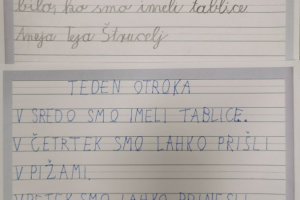 bilo, ko smo imeli tablice
Aneja Teja Štrucelj
TEDEN OTROKA
V SREDO SMO IMELI TABLICE.
V ČETRTEK SMO LAHKO PRIŠLI
V PIŽAMI.
V PETEK SMO LAHKO PRINESLI